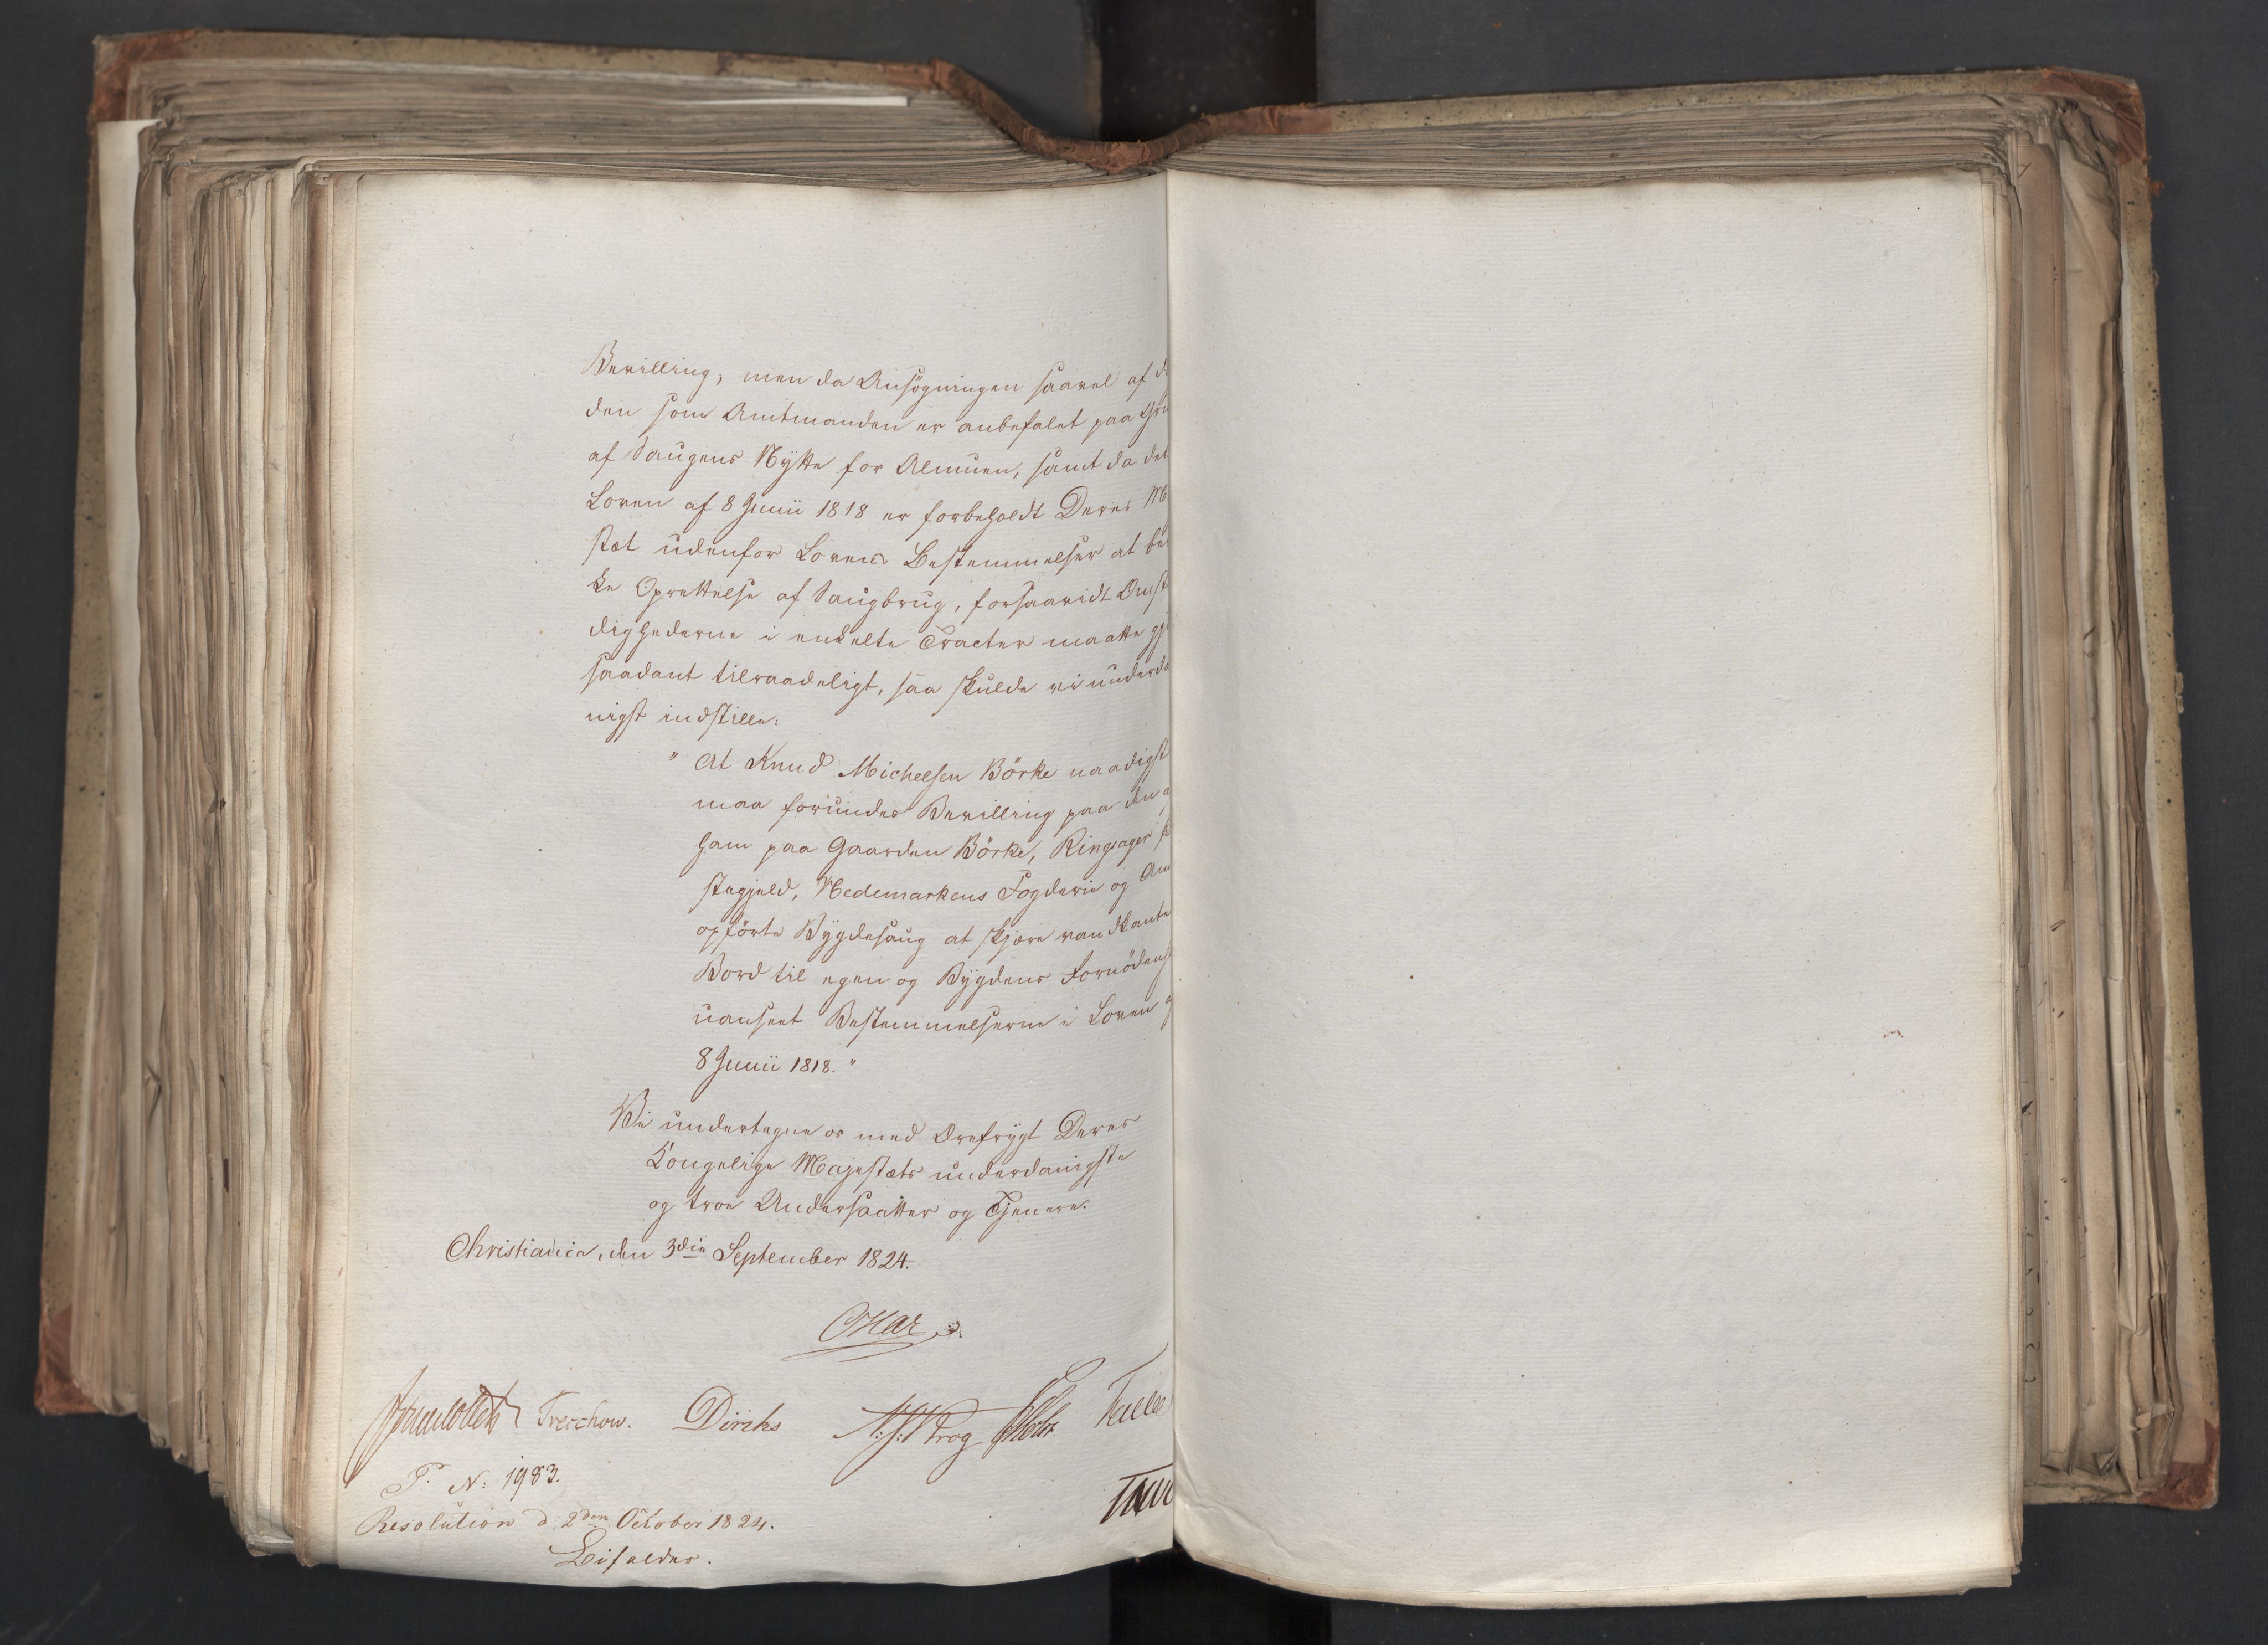 Bevilling; men da Ansøgningen saavel af
den som Amtmanden er anbefalet paa Gru
af Saugens Nÿtte for Almuen, samt da det
Loven af 8 Junii 1818 er forbeholdt Deres M
stæt udenfor Lovens Bestemmelser at be
ke Oprettelse af Saugbrug, forsaavidt Omst
dighederne i enkelte Tracter maatte gj
saadant tilraadeligt, saa skulde vi underda
nigst indstille:
" At Knud Michelsen Börke naadigst
maa forundes Bevilling paa den
ham paa Gaarden Börke, Ringsager
stegjeld, Hedemarkens Fogderie og Am
opförte Bÿgdesaug at skjære vandkante
Bord til egen og Bÿgdens Fornödens
uanseet Bestemmelserne i Loven
8 Junii 1818. "
Vi undertegne os med Ærefrÿgt Deres
Kongelige Majestæts underdanigste
og troe Undersaatter og Tjenere.
Christiania, den 3die September 1824.
Treschow. Diriks N: J: Krog
P. N: 1983.
Resolution d: 2den October 1824.
Bifaldes.